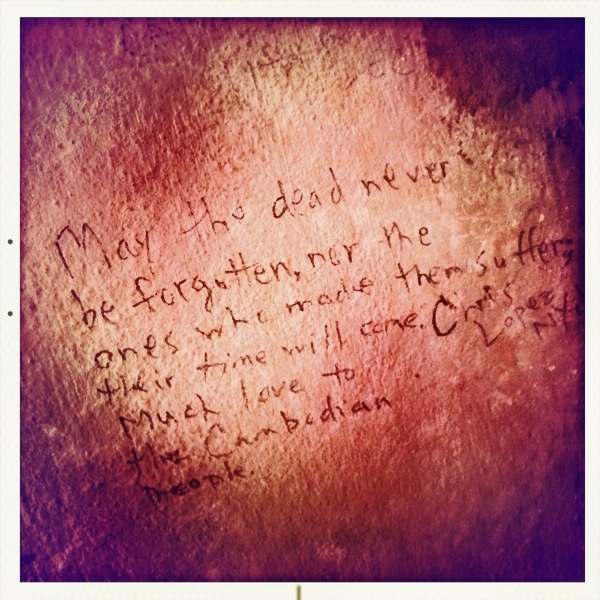 May the dead never
be forgotten, nor the
ones who made them suffer;
their time will come. Chris
Lopez
Much love to
the Cambodian
people.